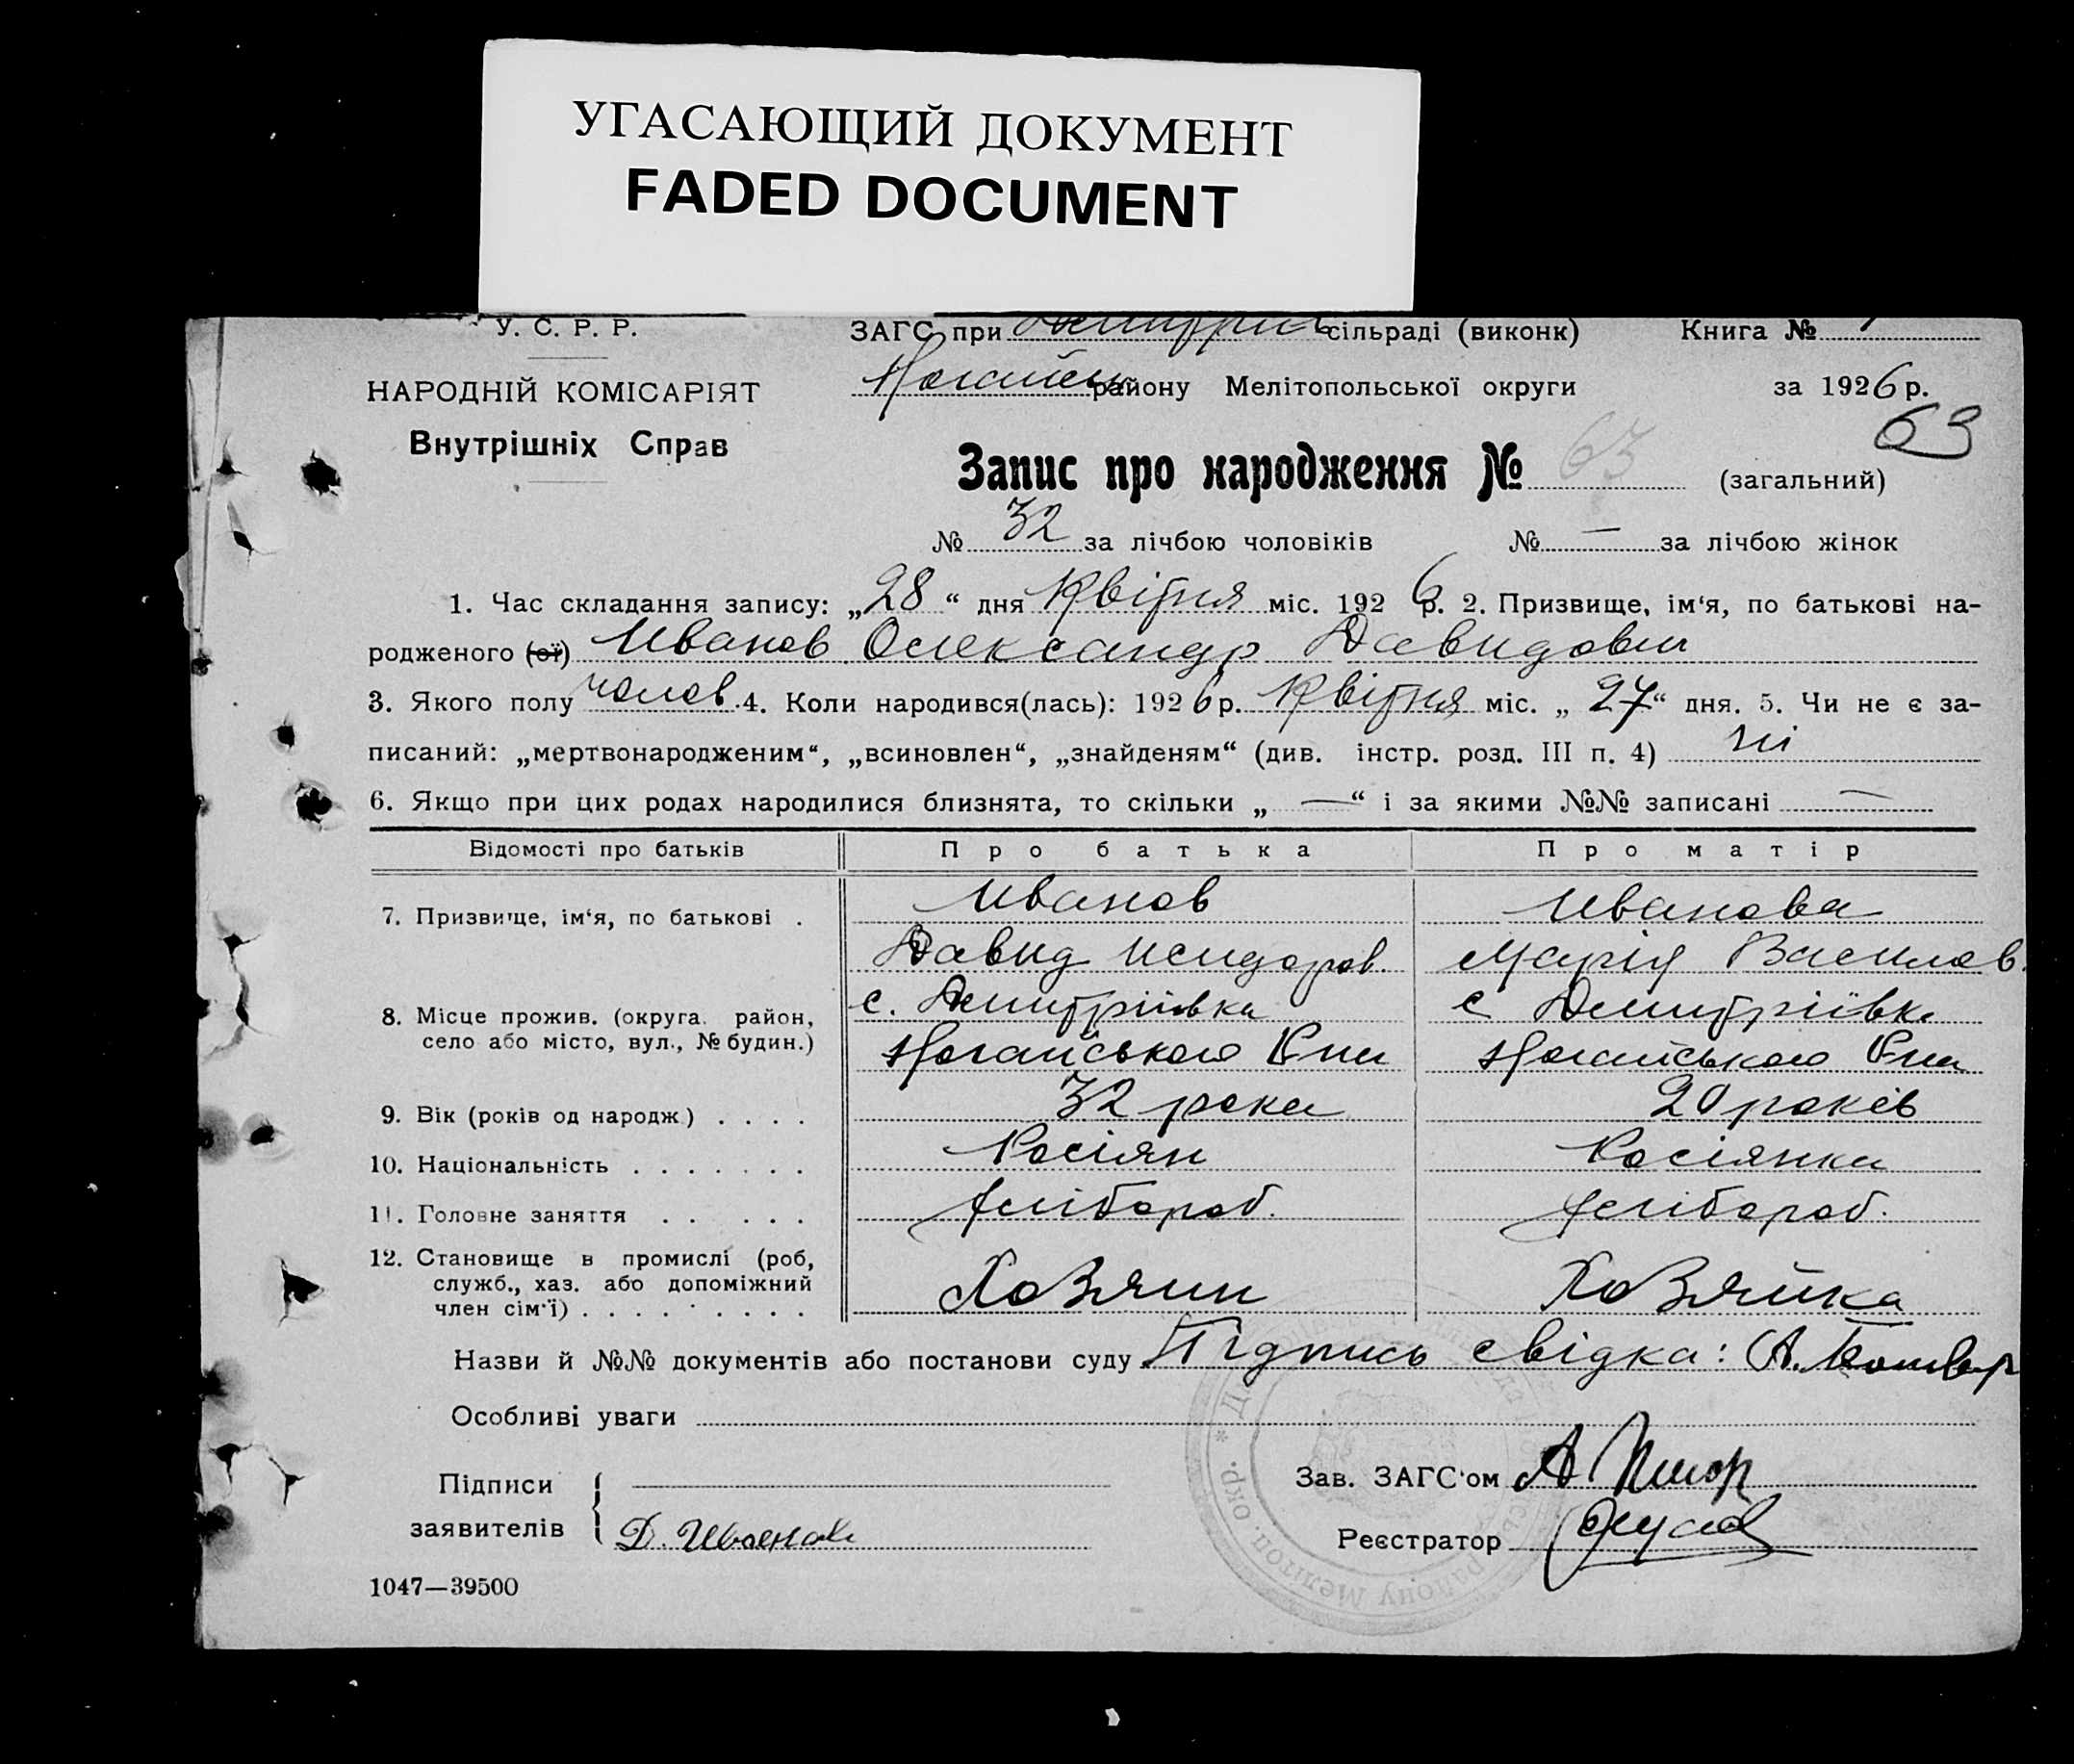 УГАСАЮЩИЙ ДОКУМЕНТ
FADED DOCUMENT
У. С. Р. Р.
ЗАГС при Дмитрів сільраді (виконк) Книга №
НАРОДНІЙ КОМІСАРІЯТ
Внутрішніх Справ
Ногайськ району Мелітопольської округи за 1926 р.
63
Запис про народження № 63 (загальний)
№ 32 за лічбою чоловіків № — за лічбою жінок
1. Час складання запису: „28“ дня Квітня міс. 1926 р. 2. Призвище, ім‘я, по батькові на-
родженого (ої) Иванов Олександр Давидович
3. Якого полу чолов. 4. Коли народився(лась): 1926 р. Квітня міс. „27“ дня. 5. Чи не є за-
писаний: „мертвонародженим“, „всиновлен“, „знайденям“ (див. інстр. розд. III п. 4) ні
6. Якщо при цих родах народилися близнята, то скільки „ — “ і за якими №№ записані —
Відомості про батьків Про батька Про матір
7. Призвище, ім‘я, по батькові . Иванов Иванова
Давид Исидоров. Марія Василов.
8. Місце прожив. (округа. район, с. Дмитріївка с Дмитріївка
село або місто, вул., № будин.) Ногайського Ногайського
9. Вік (років од народж.) . . . . 32 роки 20 років
10. Національність . . . . . . . Росіян Росіянка
11. Головне заняття . . . . . Хлібороб. Хлібороб.
12. Становище в промислі (роб,
служб., хаз. або допоміжний
член сім‘ї) . . . . . . . . . Хозяин Хозяйка
Назви й №№ документів або постанови суду Підпись свідка: А.
Особливі уваги
Підписи
заявителів Д. Иванов
Зав. ЗАГС‘ом А
Реєстратор
1047—39500
району Мелітоп. окр. *